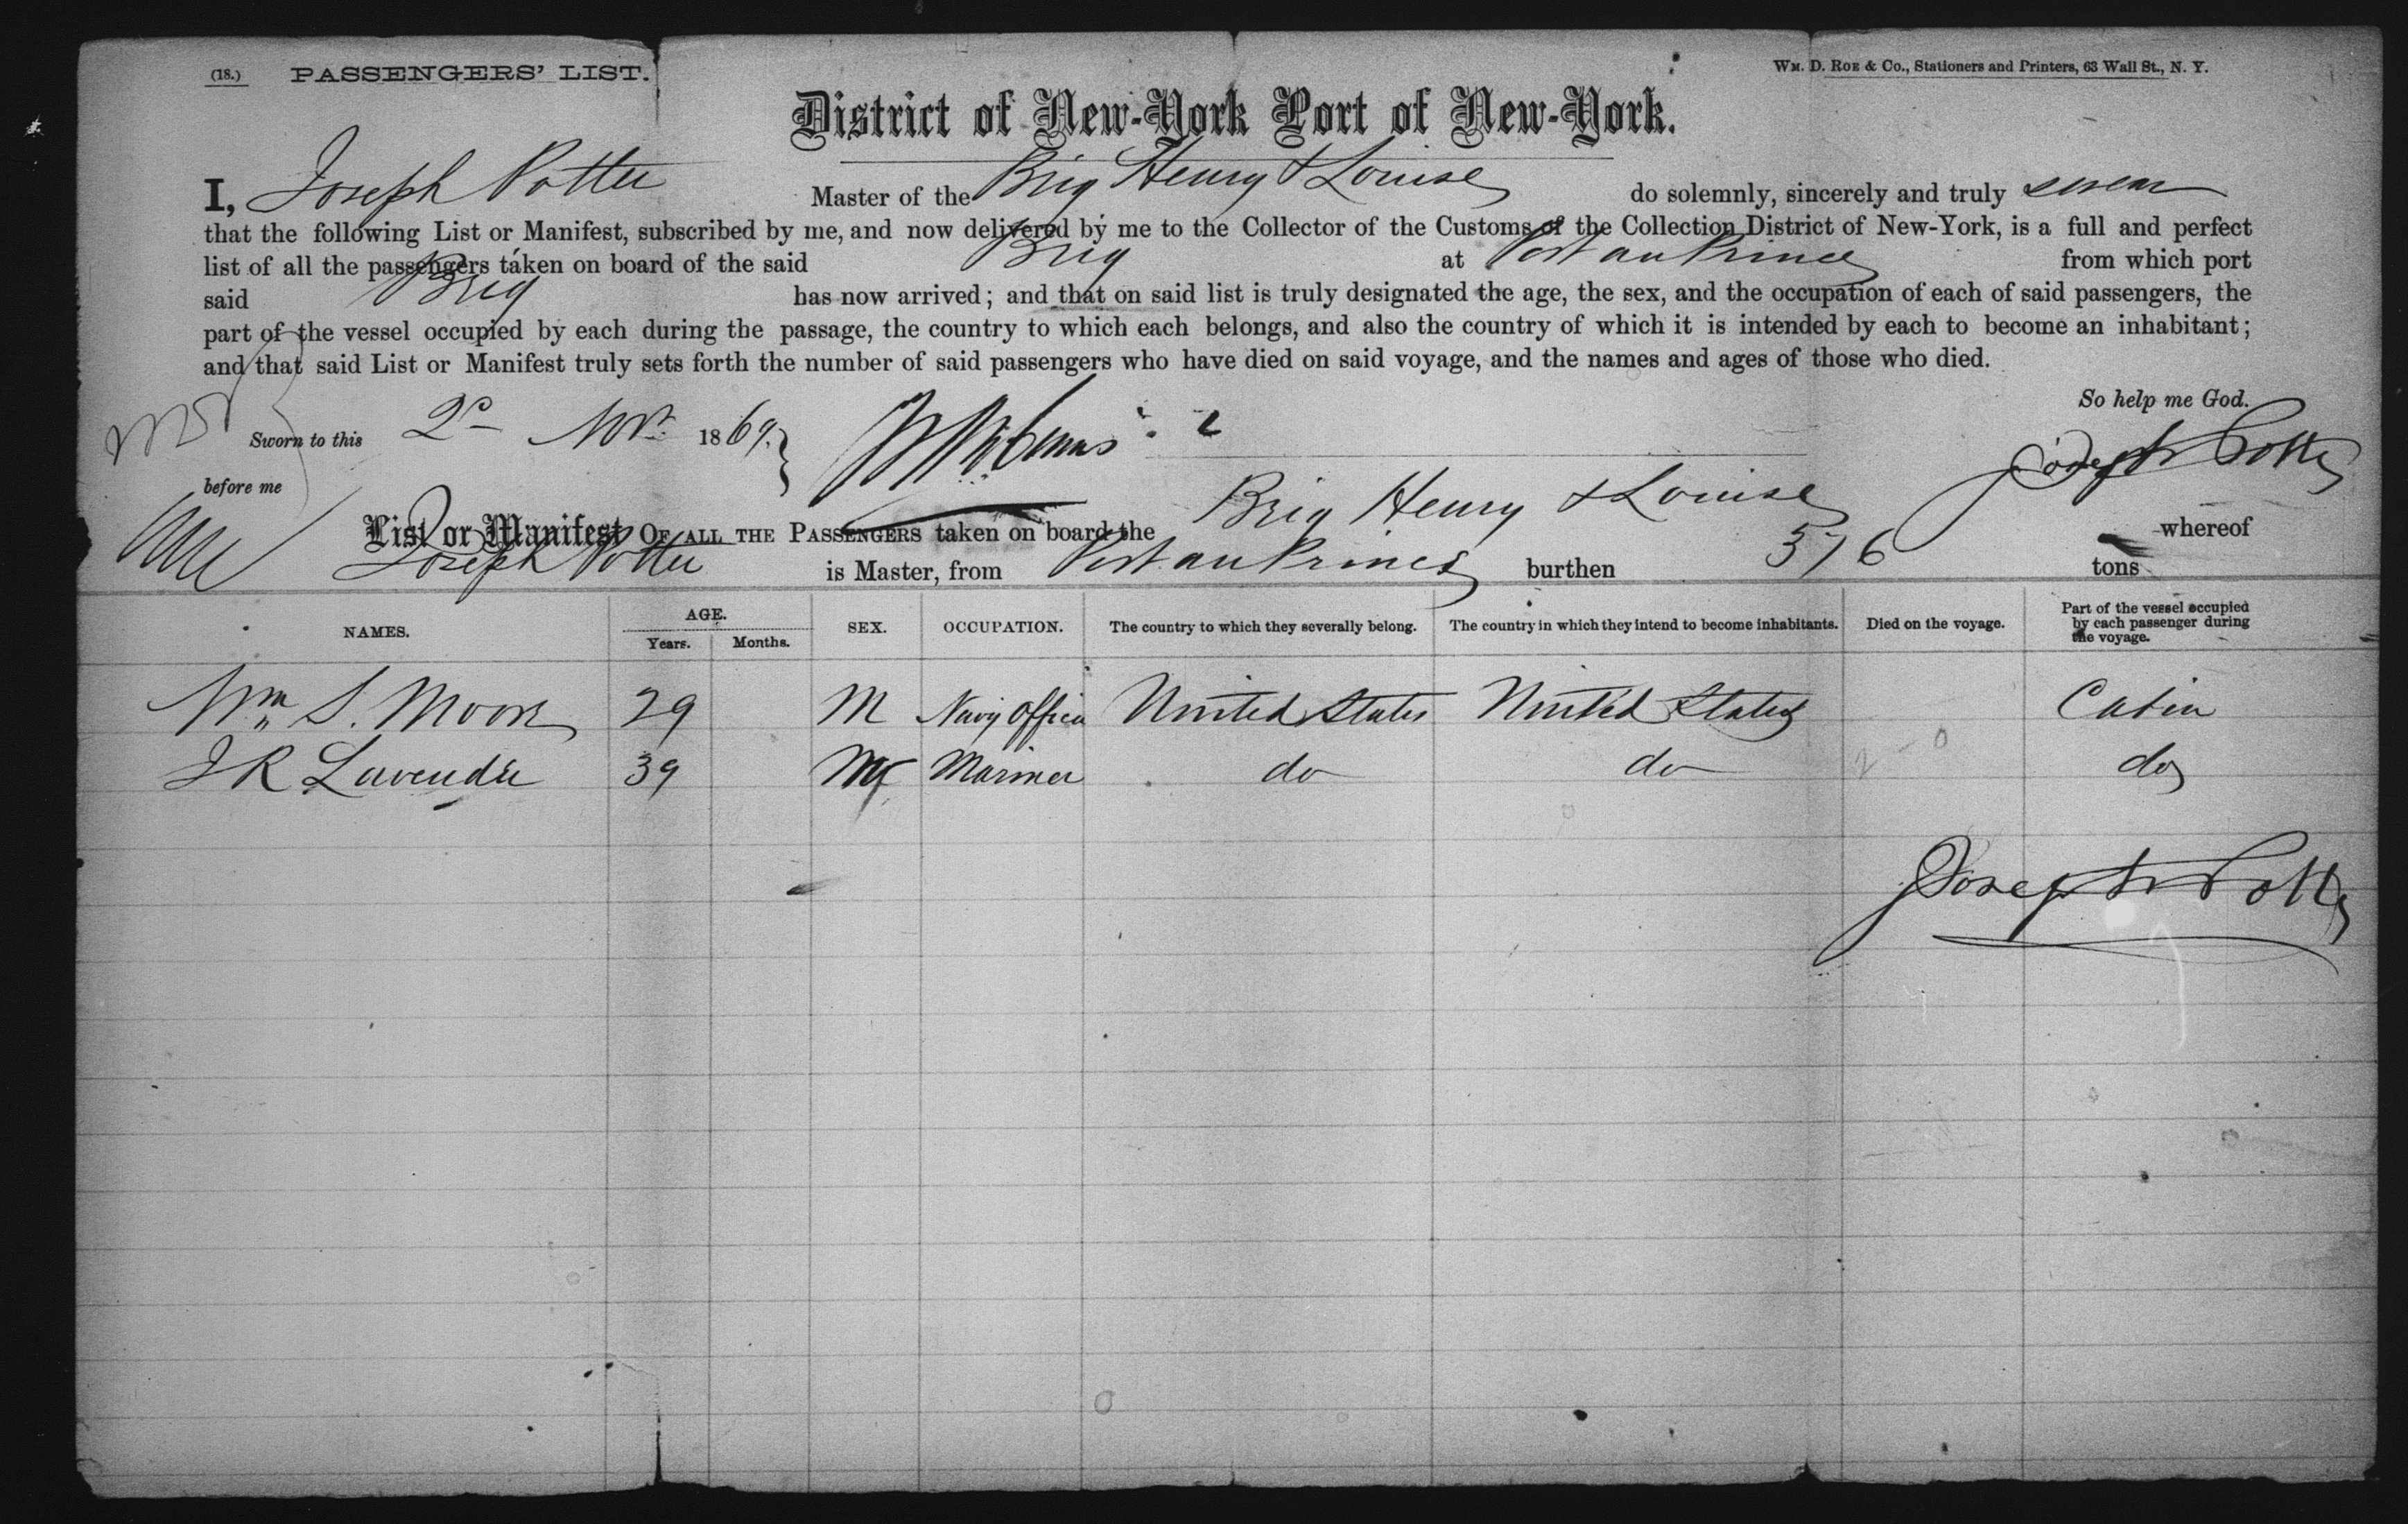 (18.) PASSENGERS' LIST.
WM. D. ROE & CO., Stationers and Printers, 63 Wall St., N. Y.
District of New-York Port of New-York.
I, Joseph Potter Master of the Brig Henry & Louise do solemnly, sincerely and truly swear
that the following List or Manifest, subscribed by me, and now delivered by me to the Collector of the Customs of the Collection District of New-York, is a full and perfect
list of all the passengers taken on board of the said Brig at Port au Prince from which port
said Brig has now arrived; and that on said list is truly designated the age, the sex, and the occupation of each of said passengers, the
part of the vessel occupied by each during the passage, the country to which each belongs, and also the country of which it is intended by each to become an inhabitant;
and that said List or Manifest truly sets forth the number of said passengers who have died on said voyage, and the names and ages of those who died.
So help me God.
Sworn to this 2d Novr. 1869.
Joseph Potter
before me
List or Manifest OF ALL THE PASSENGERS taken on board the Brig Henry & Louise whereof
Joseph Potter is Master, from Port au Prince burthen 376 tons
NAMES. AGE. Years. Months. SEX. OCCUPATION. The country to which they severally belong. The country in which they intend to become inhabitants. Died on the voyage. Part of the vessel occupied by each passenger during the voyage.
Wm S. Moore 29 M Navy Officer United States United States Cabin
J R Lavender 39 M Mariner do do 2 - 0 do
Joseph Potter